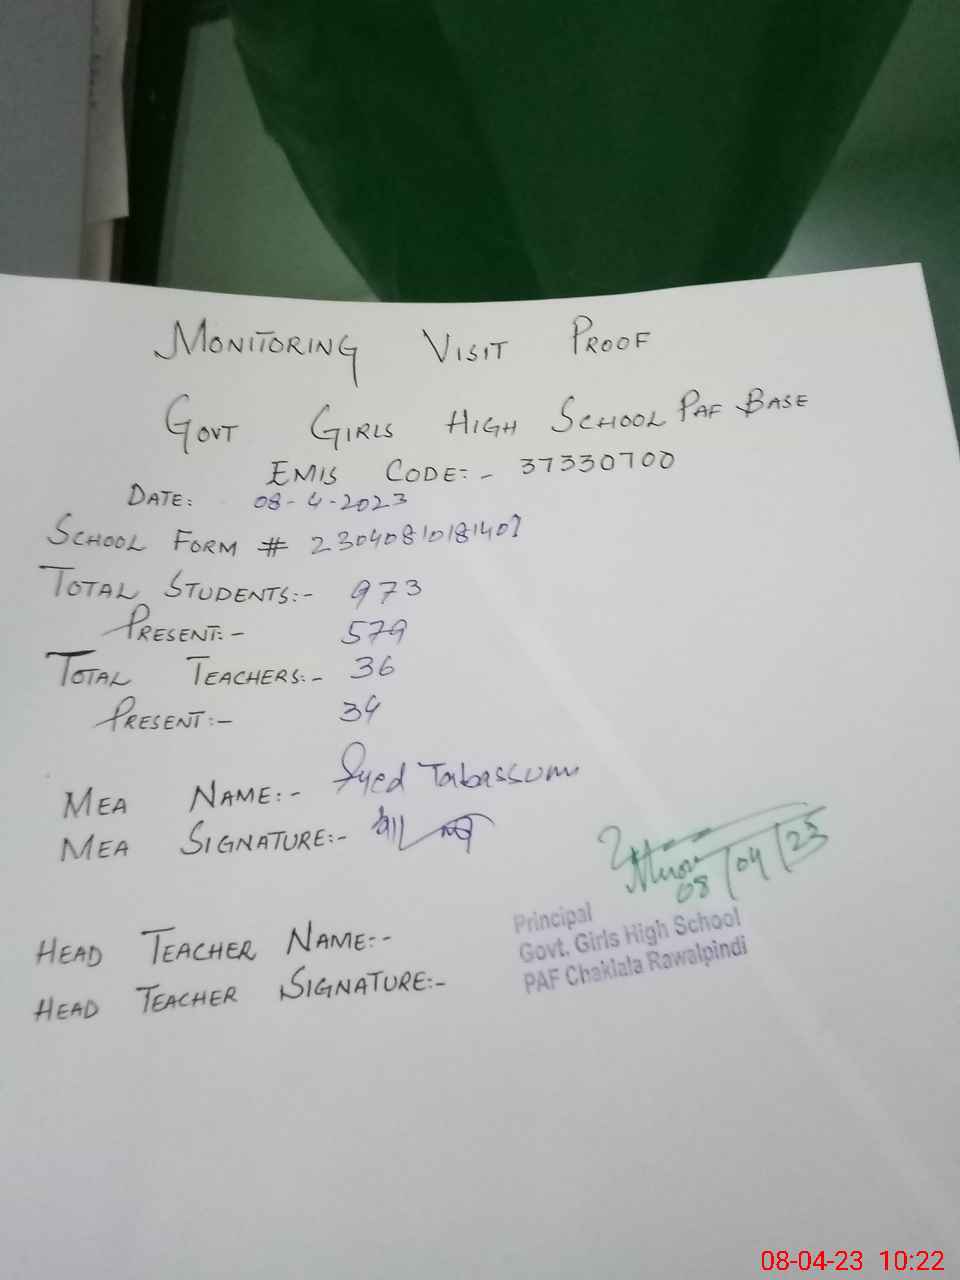 MONITORING VISIT PROOF
GOVT GIRLS HIGH SCHOOL PAF BASE
EMIS CODE:- 37330700
DATE: 08-4-2023
SCHOOL FORM # 23040810181407
TOTAL STUDENTS:- 973
PRESENT:- 579
TOTAL TEACHERS:- 36
PRESENT:- 34
MEA NAME:- Syed Tabassum
MEA SIGNATURE:-
08/04/23
HEAD TEACHER NAME:-
HEAD TEACHER SIGNATURE:-
Principal
Govt. Girls High School
PAF Chaklala Rawalpindi
08-04-23 10:22